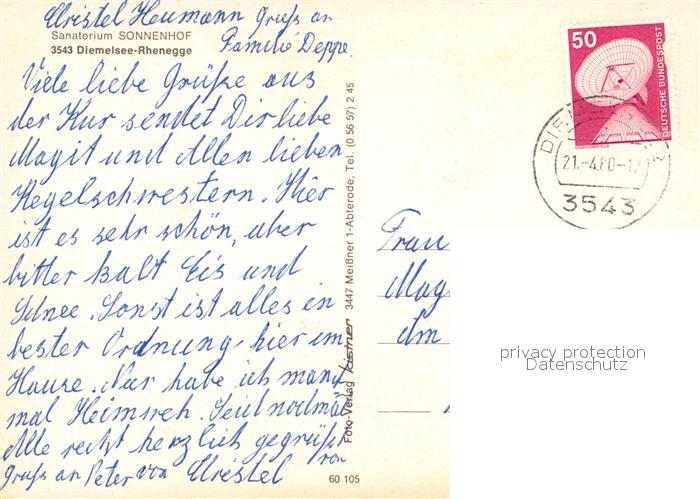 Christel Heumann Gruß an
Familie Deppe.
Sanatorium SONNENHOF
3543 Diemelsee-Rhenegge
Viele liebe Grüße aus
der Kur sendet Dir liebe
Magit und Allen lieben
Kegelschwestern. Hier
ist es sehr schön, aber
bitter kalt Eis und
Schnee. Sonst ist alles in
bester Ordnung hier im
Hause. Nur habe ich manch
mal Heimweh. Seid nochmal
Alle recht herzlich gegrüßt
von
Gruß an Peter von Christel
Foto-Verlag Kästner 3447 Meißner 1-Abterode, Tel. (0 56 57) 2 45
60 105
50
DEUTSCHE BUNDESPOST
21.-4.80-17
3543
Frau
Mag
Am
privacy protection
Datenschutz